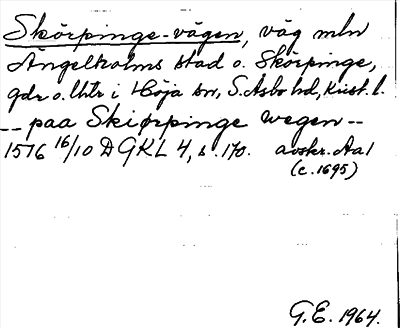 Skörpinge-vägen, väg mln
Ängelholms stad o. Skörpinge,
gdr o. lhtr i Höja sn, S. Åsbo hd, Krist. l.
-- paa Skiørpinge wegen --
1576 16/10 DGKL 4, s. 170. avskr. Aa1
(c. 1695)
G.E. 1964.